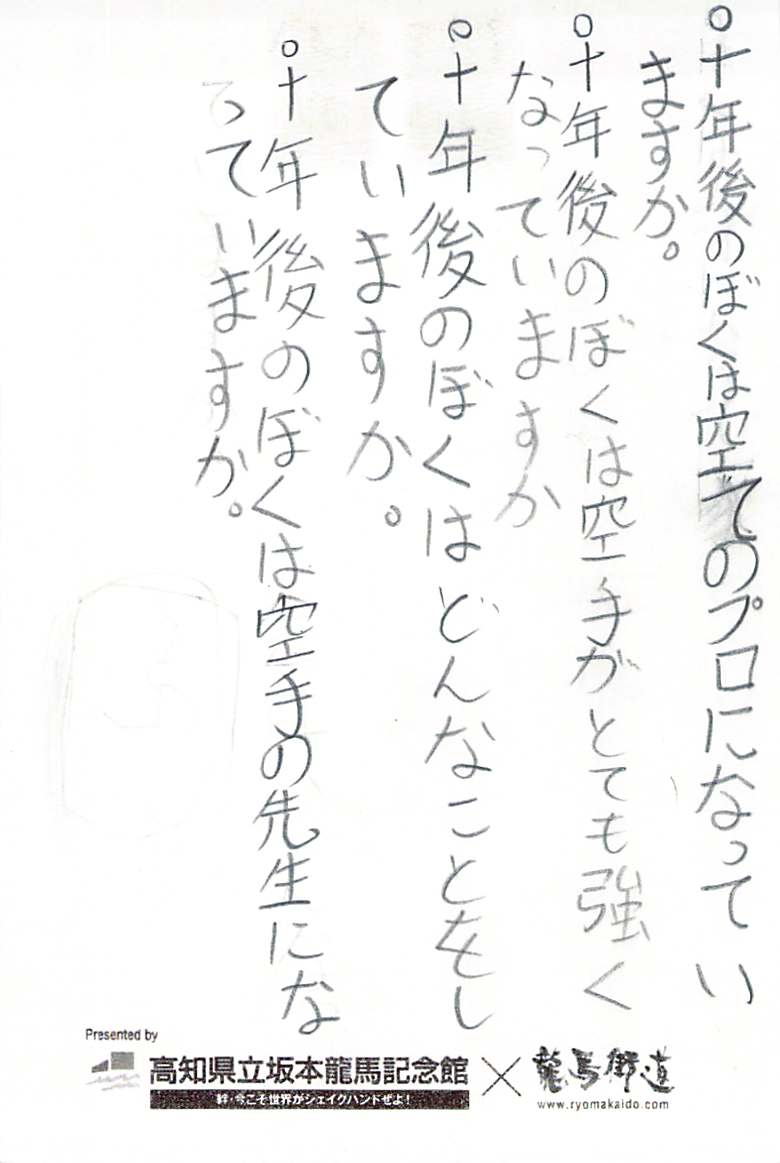 ○十年後のぼくは空てのプロになってい
ますか。
○十年後のぼくは空手がとても強く
なっていますか
○十年後のぼくはどんなことをし
ていますか。
○十年後のぼくは空手の先生にな
っていますか。
Presented by
高知県立坂本龍馬記念館×龍馬街道
絆・今こそ世界がシェイクハンドぜよ！
www.ryomakaido.com